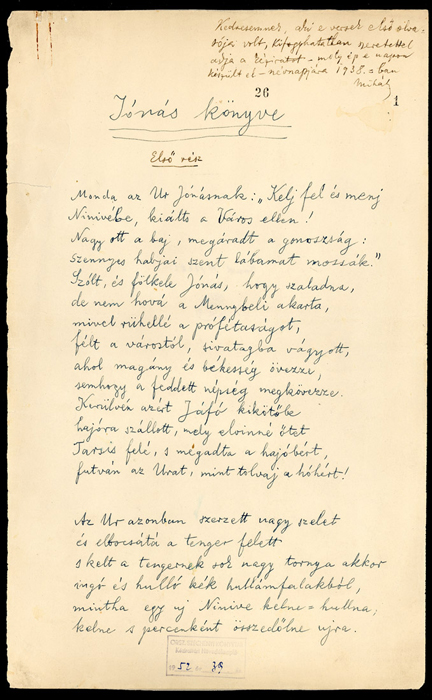 Kedvesemnek, aki e versek első olva-
sója volt, kifogyhatatlan szeretettel
adja a kéziratot – mely ép e napon
készült el – névnapjára 1938 = ban
Mihály
26
1
Jónás könyve
Első rész
Monda az Ur Jónásnak: „Kelj fel és menj
Ninivébe, kiálts a Város ellen!
Nagy ott a baj, megáradt a gonoszság:
szennyes habjai szent lábamat mossák."
Szólt, és fölkele Jónás, hogy szaladna,
de nem hová a Mennybeli akarta,
mivel rühellé a prófétaságot,
félt a várostól, sivatagba vágyott,
ahol magány és békesség övezze,
semhogy a feddett népség megkövezze.
Kerülvén azért Jáfó kikötőbe
hajóra szállott, mely elvinné őtet
Tarsis felé, s megadta a hajóbért,
futván az Urat, mint tolvaj a hóhért!
Az Ur azonban szerzett nagy szelet
és elbocsátá a tenger felett
s kelt a tengernek sok nagy tornya akkor
ingó és hulló kék hullámfalakból,
mintha egy uj Ninive kelne = hullna,
kelne s percenként összedőlne ujra.
1952 39